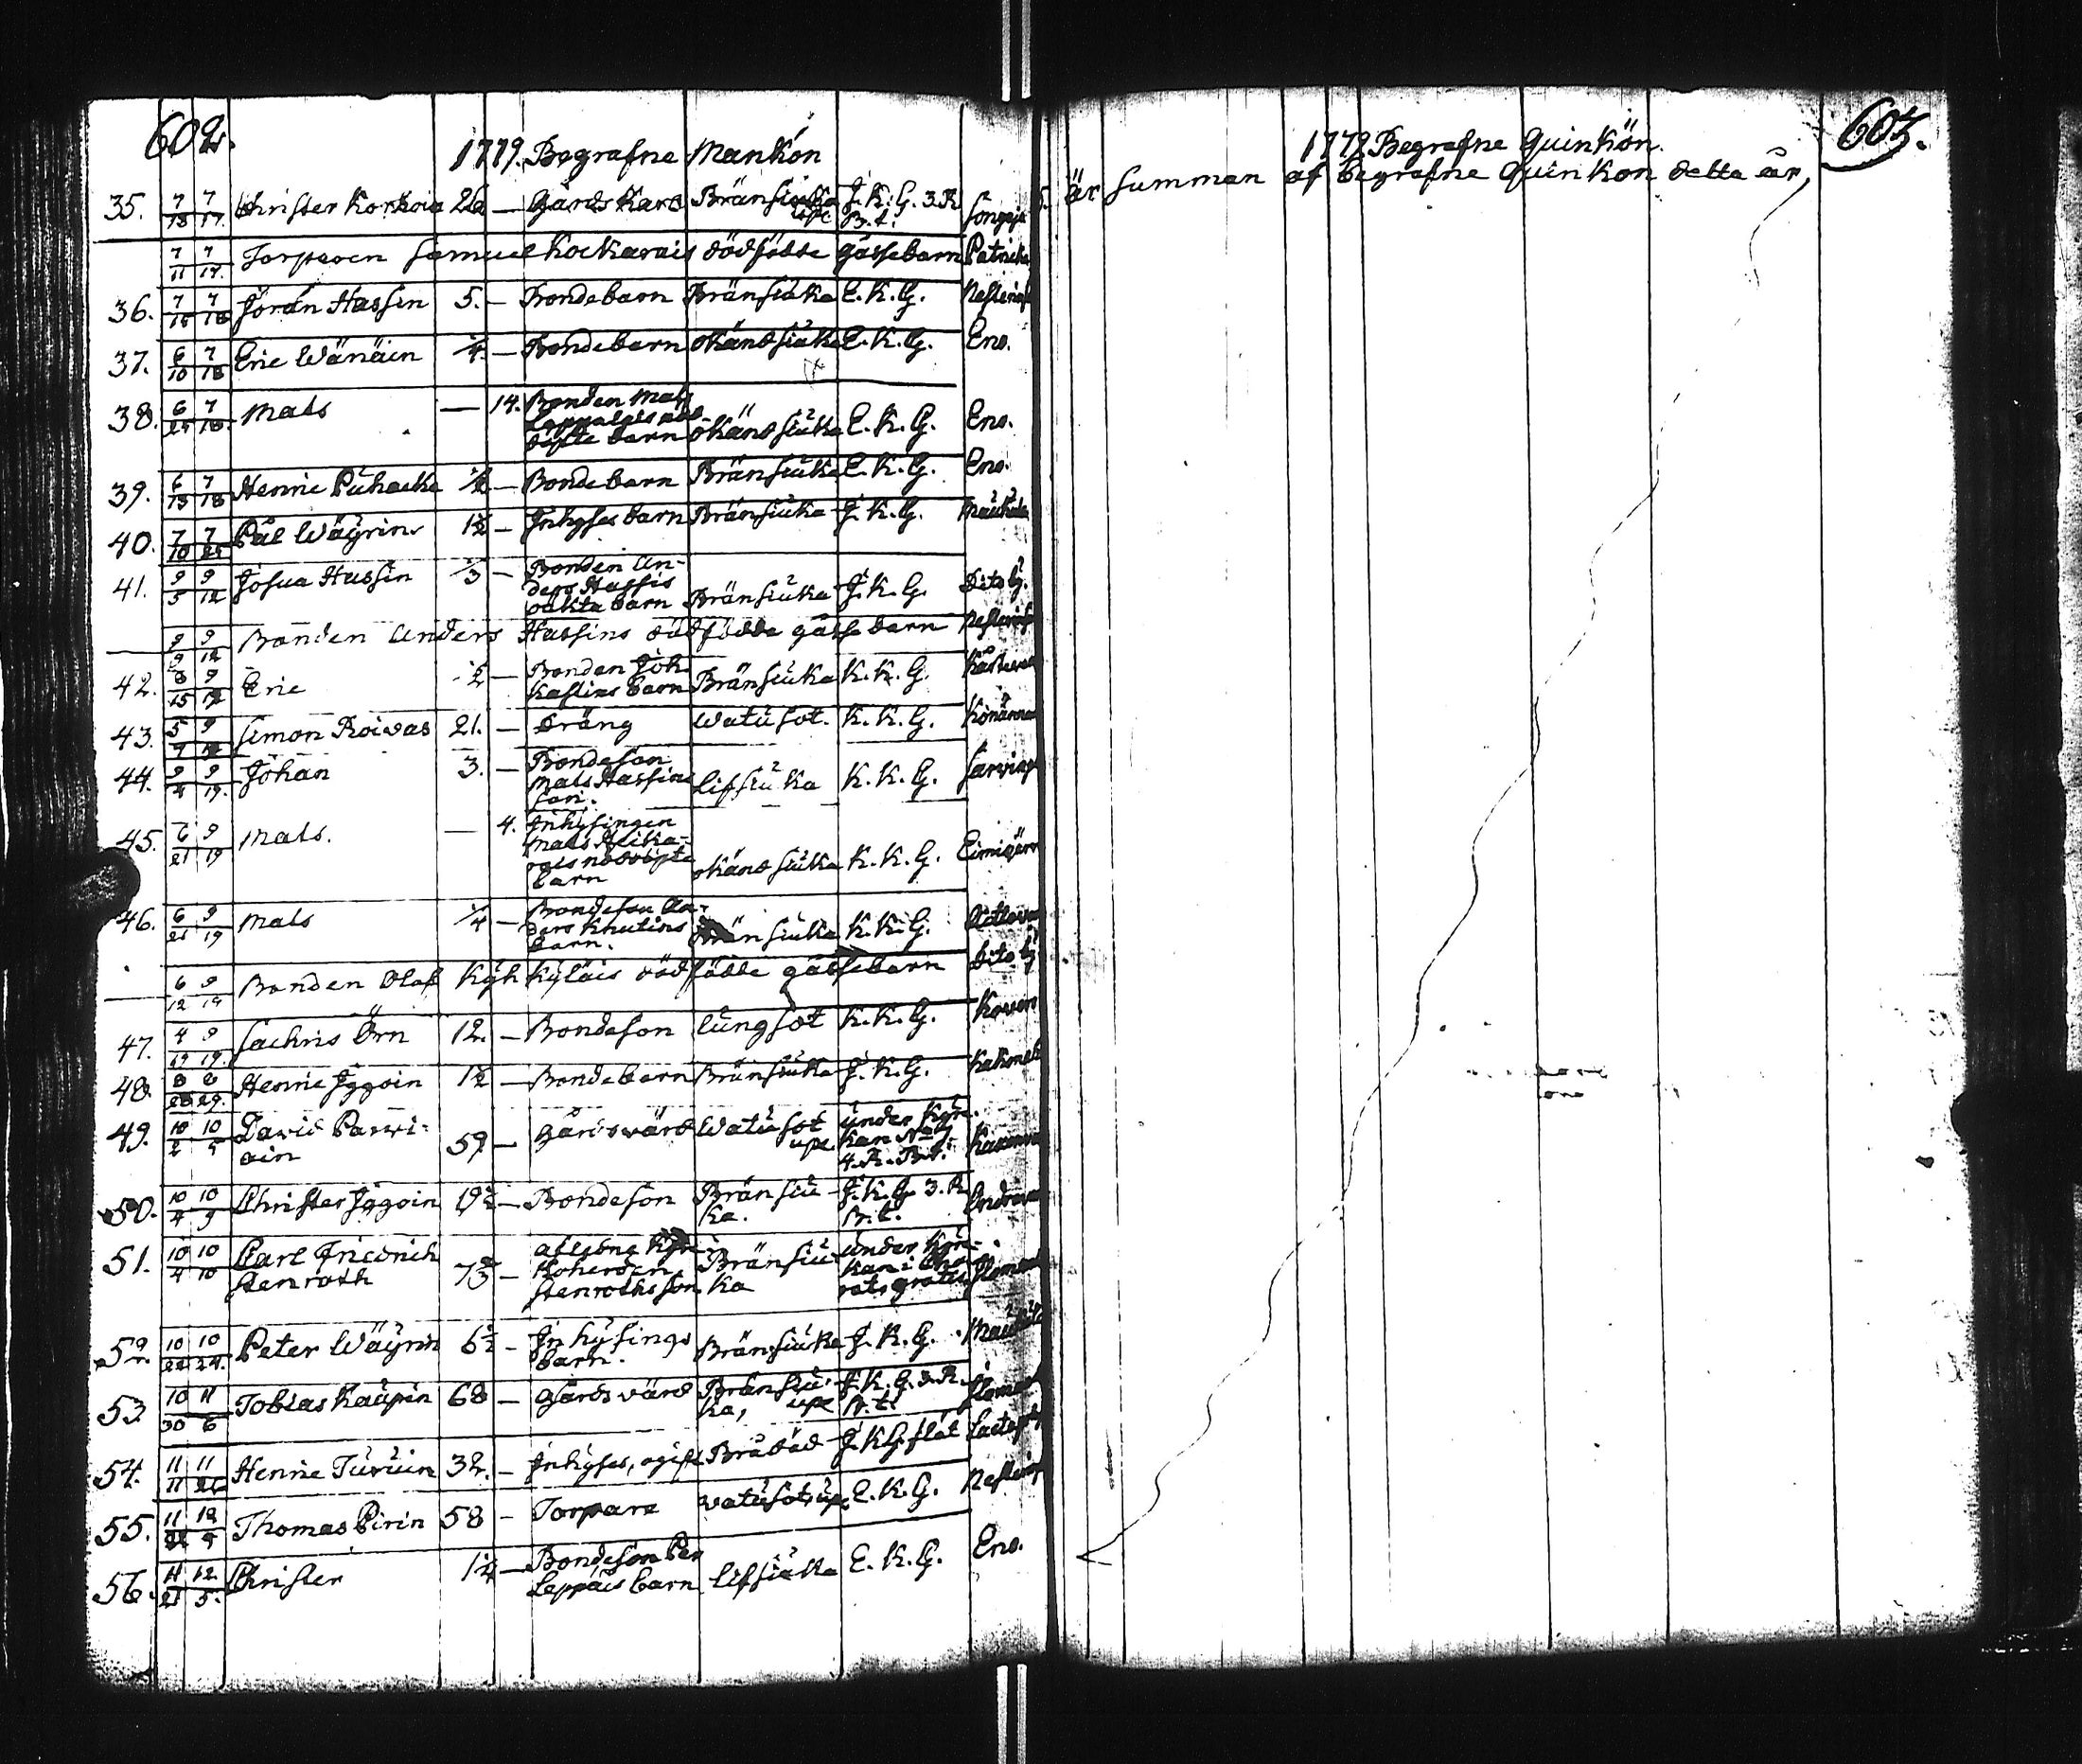 602.
1779. Begrafne Mankön
35. 7/13 7/17. Christer Korkoia 26 — Gårds Karl Bränsiuka upe J. K. G. 3. R B. t.
7/11 7/17. Torparen Samuel Kockarais dödfödde gåssebarn
36. 7/15 7/18 Jöran Hassin 5. — Bondebarn Bränsiuka E. K. G.
37. 6/10 7/18 Eric Wänäin 1/4. — Bondebarn okänd siuka E. K. G. Eno.
38. 6/27 7/18. Mats — 14. Bonden Mats
nöd-
döpte barn okänd siuka E. K. G. Eno.
39. 6/13 7/18 Henric Puhacka 1/2 — Bondebarn Bränsiuka E. K. G. Eno.
40. 7/10 7/25 Pål Wäyrin 1 1/2 — Inhyses barn Bränsiuka J. K. G.
41. 9/5 9/12 Josua Hassin 1/3 — Bonden An-
ders Hassis
oäkta barn Bränsiuka J. K. G. Dito by.
9/9 9/12 Bonden Anders Hassins dödfödde gåsse barn
42. 8/15 9/19 Eric 1/2 — Bonden Joh.
barn Bränsiuka K. K. G.
43. 5/7 9/19 Simon Roivas 21. — dräng Watusot. K. K. G.
44. 9/2 9/19. Johan 3. — Bondeson
Mats Hassins
son. lifsiuka K. K. G.
45. 6/21 9/19 Mats. — 4. Inhysingen
Mats
nöddöpte
barn okänd siuka K. K. G.
46. 6/21 9/19 Mats 1/4 — Bondeson An-
ders Knutins
barn. Bränsiuka K. K. G.
6/12 9/19 Bonden Olof Kyhkyläis dödfödde gåssebarn Dito by
47. 4/19 9/19. Sachris Örn 12. — Bondeson lungsot K. K. G.
48. 8/28 8/29. Henric Iggoin 1 1/2 — Bondebarn Bränsiuka J. K. G.
49. 10/2 10/5 David Parvi-
ain 59 — Gårdsvärd Watusot upe. under Kyr-
kan N:o 7
4. R. B. t.
50. 10/4 10/9 Christer Iggoin 19 1/2 — Bondeson Bränsiu-
ka. J. K. G. 3. R
B. t.
51. 10/4 10/10 Carl Friedrich
Stenroth 7 2/3 — aflidne Kyr-
koherden
Stenroths son Bränsiu-
ka under Kyr-
kan i Cho-
ret, gratis
52. 10/22 10/24. Peter Wäyrin 6 1/2 — Inhysings
barn. Bränsiuka J. K. G.
53 10/30 11/6 Tobias Kaupin 68 — Gårdsvärd Bränsiu-
ka, upe J. K. G. 3. R.
B. t.
54. 11/11 11/21 Henric Turuin 32. — Inhyses, ogift Bråd död J. K. G. flat
55. 11/21 12/5 Thomas Pirin 58 — Torpare watusot, upe E. K. G.
56. 11/21 12/5. Christer 1 1/4 — Bondeson Per
Leppäis barn lifsiuka E. K. G. Eno.
603.
1779 Begrafne Quinkön.
är summan af begrafne Quinkön detta år,